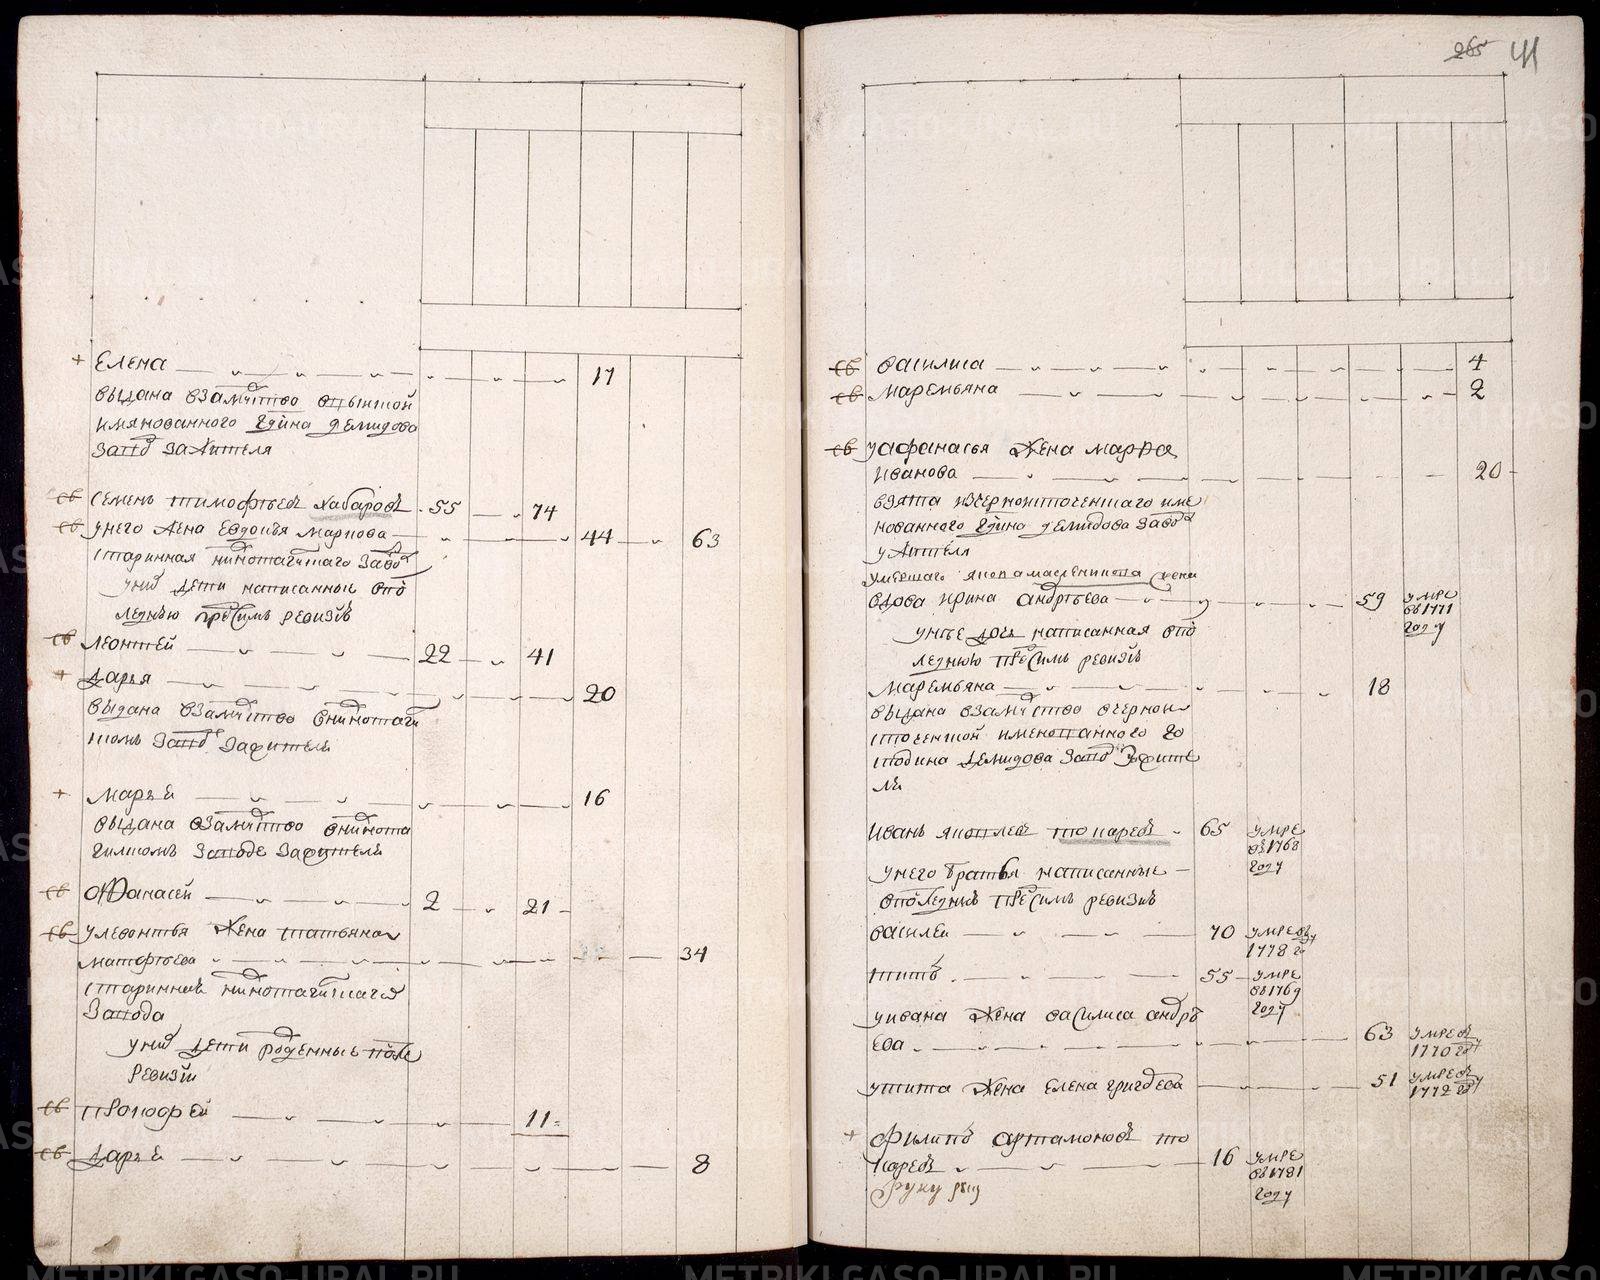 Елена 17
выдана взамужство
имянованного Гдина демидова
завод зажителя
Семенъ тимофеевъ хабаровъ 55 74
унего жена Евдокья маркова 44 63
старинная нижнотагилскаго завод
уних дети написанные впо
леднюю пред симъ ревизию
леонтей 22 41
дарья 20
выдана взамужство внижнотаги
скомъ завод зажителя
марья 16
выдана взамужство внижнота
гилскомъ заводе зажителя
Афанасей 2 21
улеонтья жена татьяна
матфеева 34
старинная нижнотагилскаго
завода
уних дети рожденные после
ревизии
прокофей 11
дарья 8
265 41
василиса 4
маремьяна 2
уафанасья жена марфа
иванова 20
взята изчерноисточенскаго име
нованного Гдина демидова завод
ужителя
умершаго якова масленикова жена
вдова ирина андреева 59 умре
в 1771
году
унее дочь написанная впо
леднюю пред симъ ревизию
маремьяна 18
выдана взамужство вчерноис
точенской именованного го
сподина демидова завод зажите
ля
иванъ яковлевъ токаревъ 65 умре
въ 1768
году
унего братья написанные
впоследнюю пред симъ ревизию
василей 70 умре въ
1778 г
титъ 55 умре
въ 1769
году
уивана жена василиса андрѣ
ева 63 умре въ
1770 г
утита жена елена григоева 51 умре въ
1772 г
филипъ артамоновъ то
каревъ 16 умре
въ 1781
году
METRIKI.GASO-URAL.RU